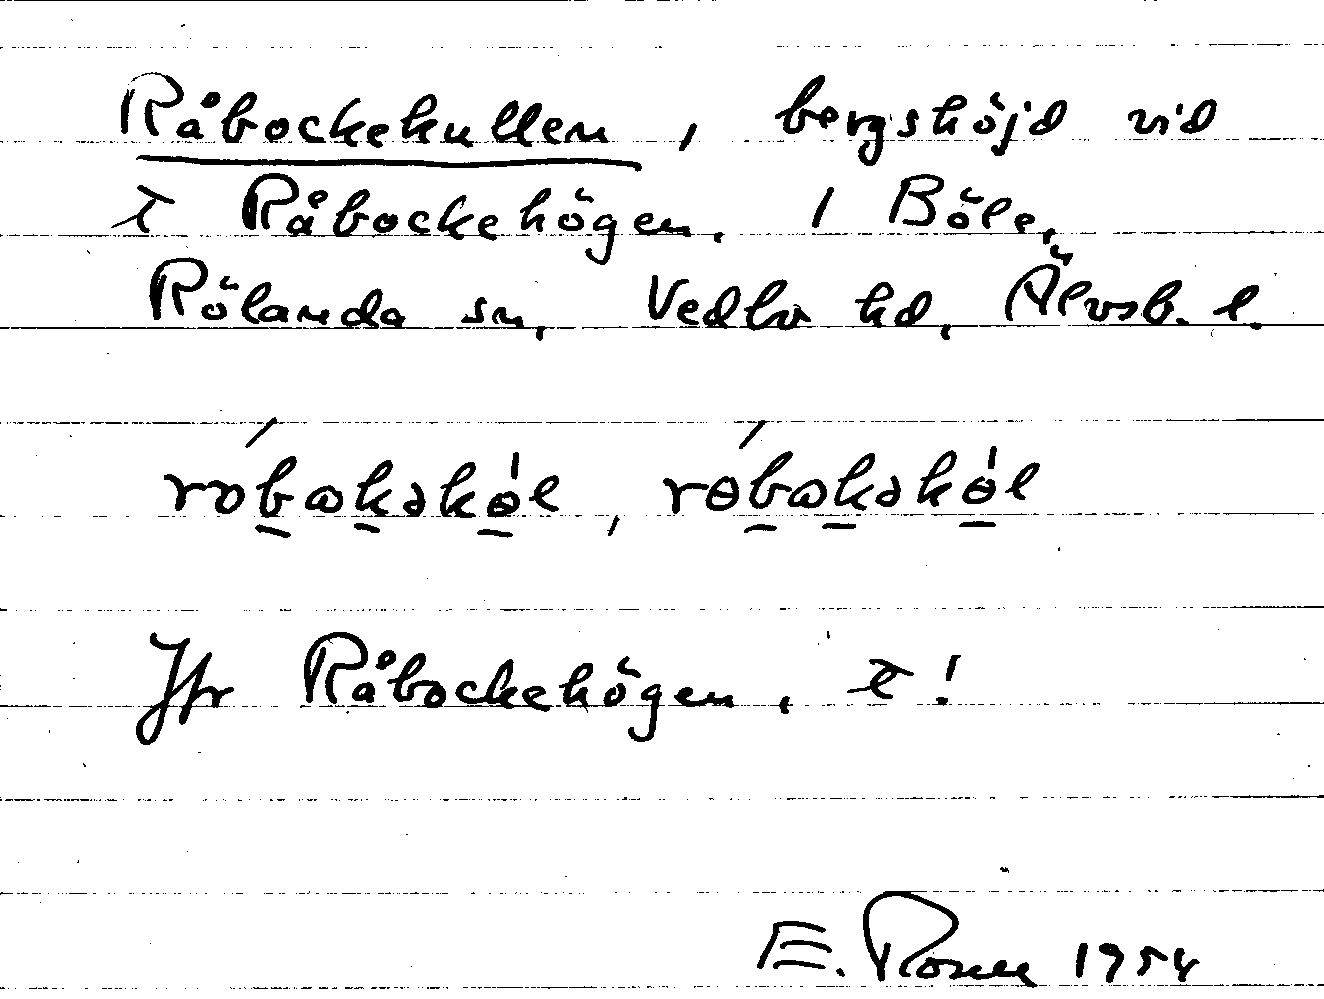 Råbockekullen, bergshöjd vid
t Råbockehögen. 1 Böle,
Rölanda sn, Vedbo hd, Älvsb. l.
Jfr Råbockehögen, t!
E. Rosen 1954